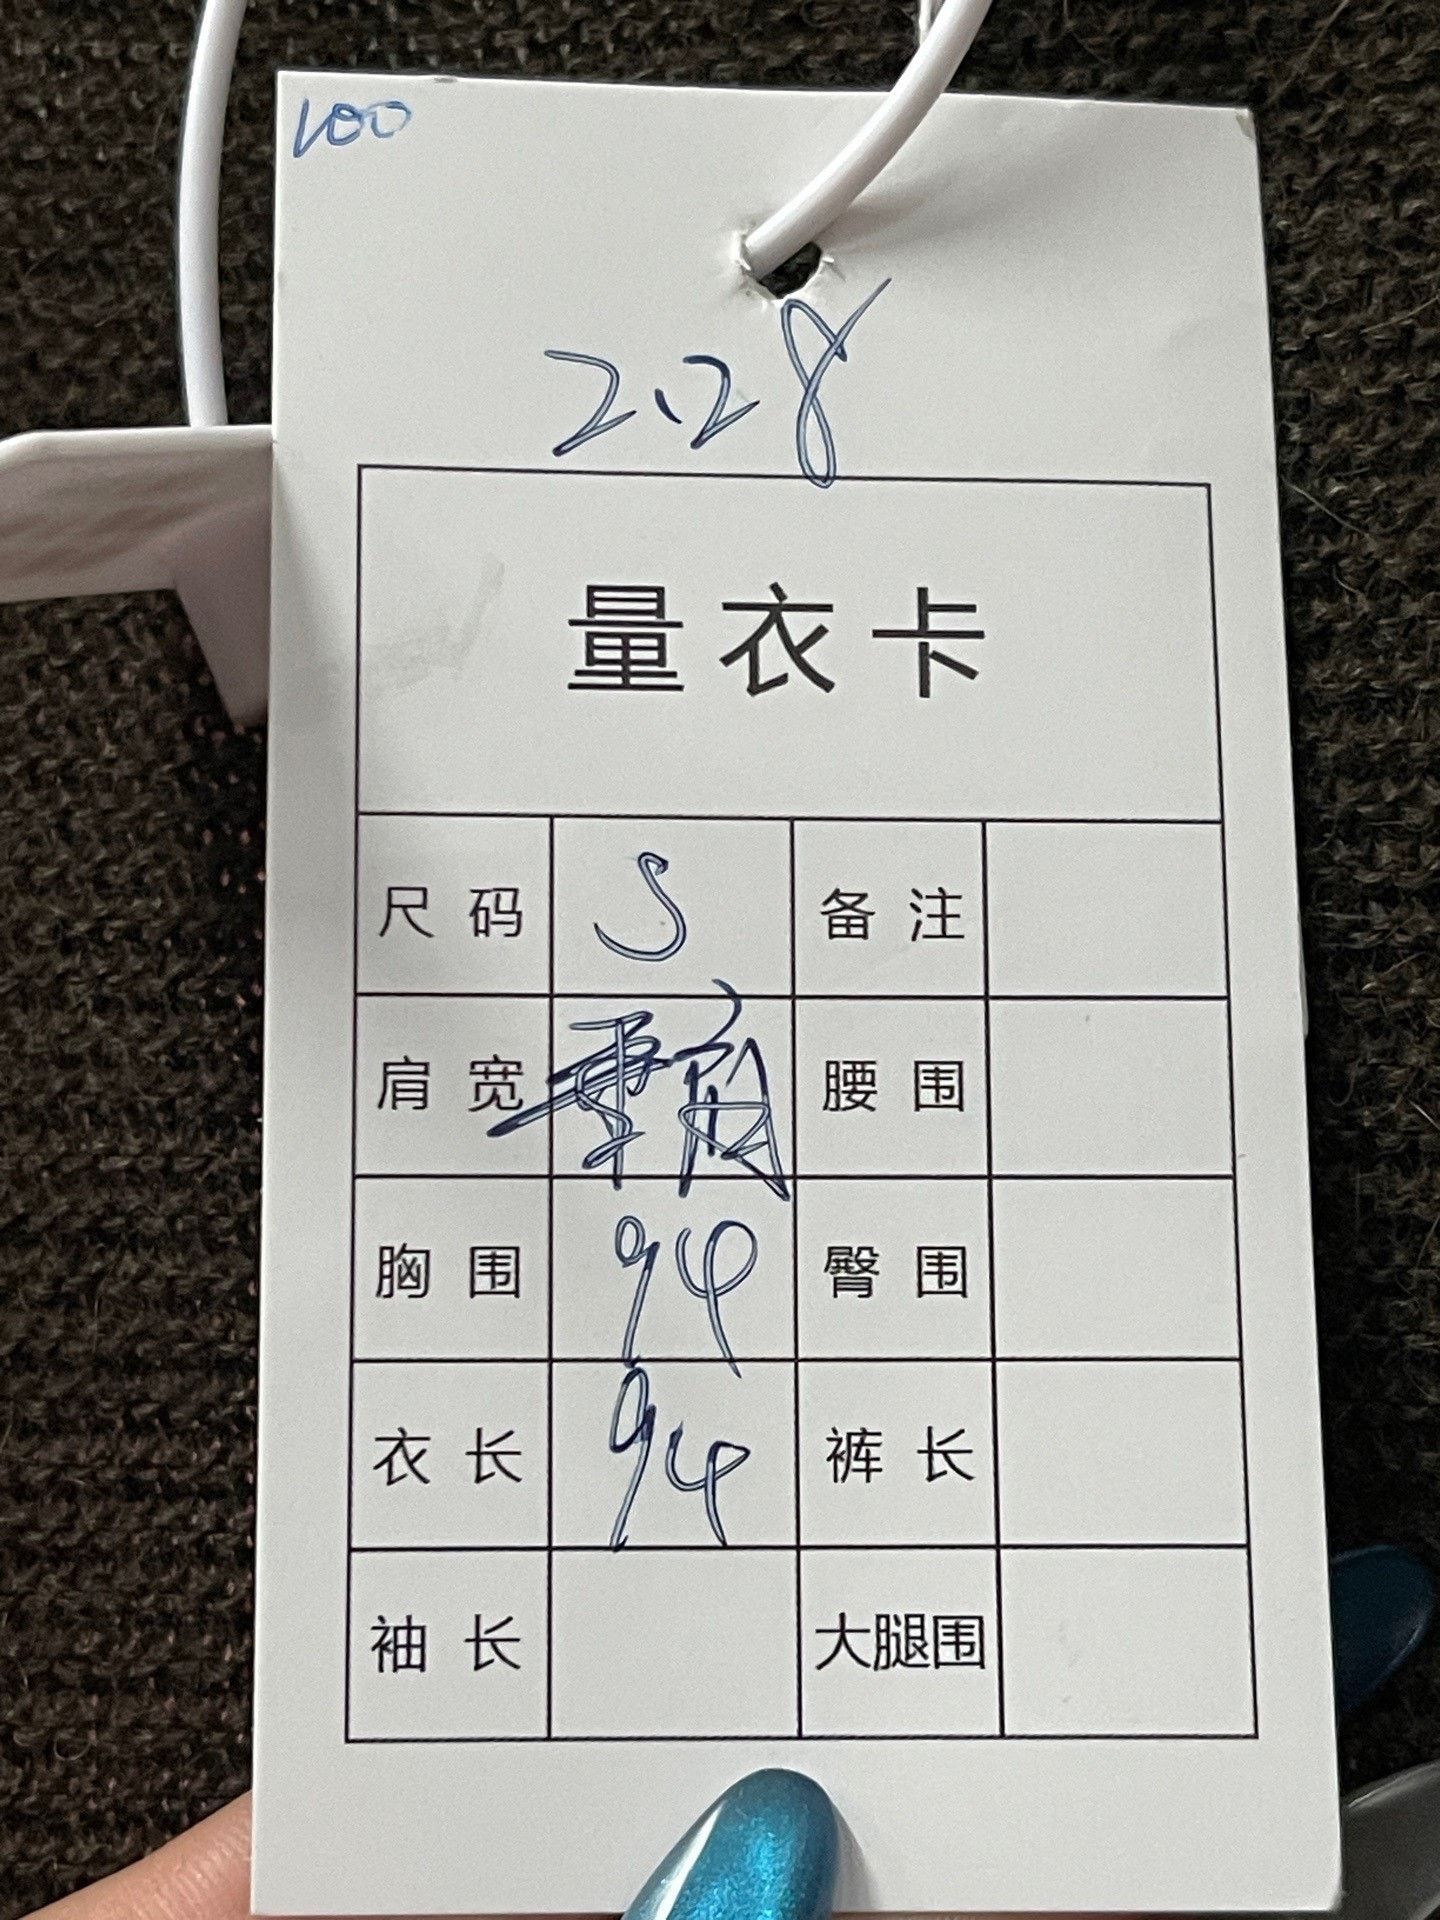 100
2.28
量衣卡
尺码 S 备注
肩宽 腰围
胸围 94 臀围
衣长 94 裤长
袖长 大腿围